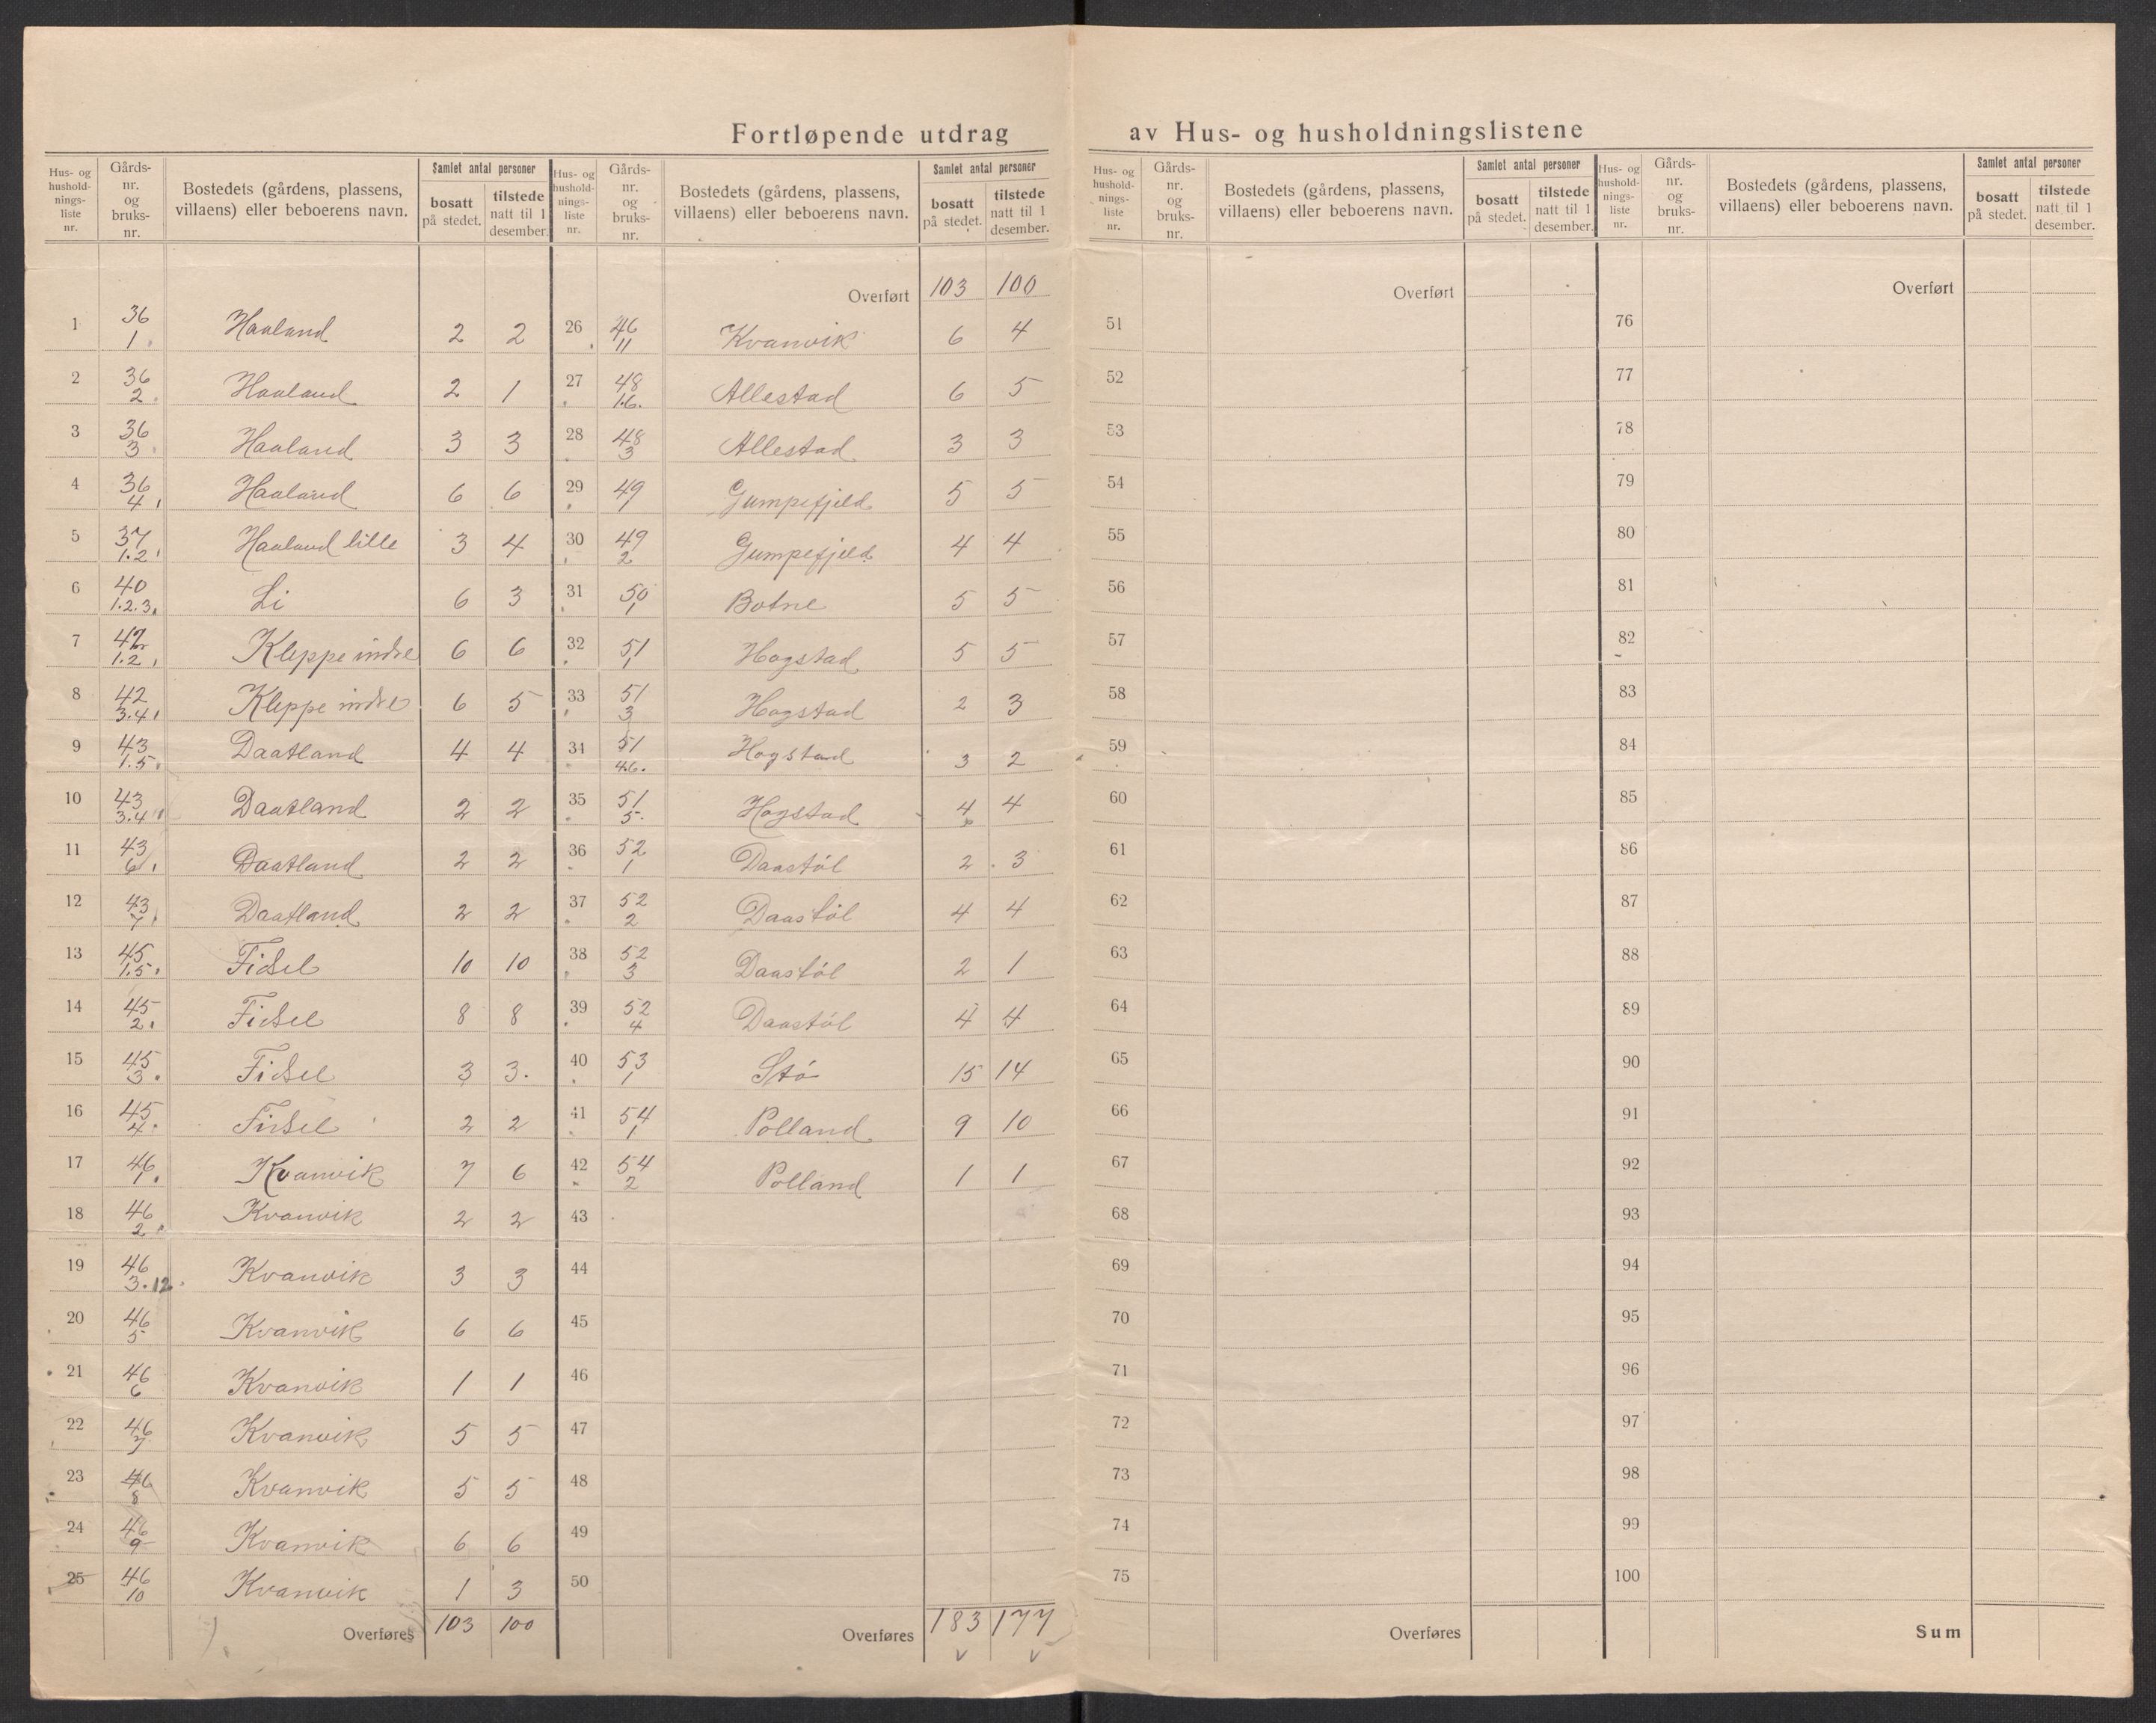 Fortløpende utdrag av Hus- og husholdningslistene
Hus- og husholdnings-liste nr. | Gårds-nr. og bruks-nr. | Bostedets (gårdens, plassens, villaens) eller beboerens navn. | Samlet antal personer | bosatt på stedet. | tilstede natt til 1 desember.
1 | 36 / 1 | Haaland | 2 | 2
2 | 36 / 2 | Haaland | 2 | 1
3 | 36 / 3 | Haaland | 3 | 3
4 | 36 / 4 | Haaland | 6 | 6
5 | 37 / 1.2 | Haaland lille | 3 | 4
6 | 40 / 1.2.3. | Li | 6 | 3
7 | 42 / 1.2 | Kleppe indre | 6 | 6
8 | 42 / 3.4 | Kleppe indre | 6 | 5
9 | 43 / 1.5. | Daatland | 4 | 4
10 | 43 / 3.4 | Daatland | 2 | 2
11 | 43 / 6 | Daatland | 2 | 2
12 | 43 / 7 | Daatland | 2 | 2
13 | 45 / 1.5. | Fidsel | 10 | 10
14 | 45 / 2. | Fidsel | 8 | 8
15 | 45 / 3. | Fidsel | 3 | 3.
16 | 45 / 4. | Fidsel | 2 | 2
17 | 46 / 1. | Kvanvik | 7 | 6
18 | 46 / 2 | Kvanvik | 2 | 2
19 | 46 / 3.12. | Kvanvik | 3 | 3
20 | 46 / 5 | Kvanvik | 6 | 6
21 | 46 / 6 | Kvanvik | 1 | 1
22 | 46 / 7 | Kvanvik | 5 | 5
23 | 46 / 8 | Kvanvik | 5 | 5
24 | 46 / 9 | Kvanvik | 6 | 6
25 | 46 / 10 | Kvanvik | 1 | 3
Overføres | 103 | 100
Hus- og husholdnings-liste nr. | Gårds-nr. og bruks-nr. | Bostedets (gårdens, plassens, villaens) eller beboerens navn. | Samlet antal personer | bosatt på stedet. | tilstede natt til 1 desember.
Overført | 103 | 100
26 | 46 / 11 | Kvanvik | 6 | 4
27 | 48 / 1.6. | Allestad | 6 | 5
28 | 48 / 3 | Allestad | 3 | 3
29 | 49 / 1 | Gumpefjeld | 5 | 5
30 | 49 / 2 | Gumpefjeld | 4 | 4
31 | 50 / 1 | Botne | 5 | 5
32 | 51 / 1 | Hogstad | 5 | 5
33 | 51 / 3 | Hogstad | 2 | 3
34 | 51 / 4.6. | Hogstad | 3 | 2
35 | 51 / 5. | Hogstad | 4 | 4
36 | 52 / 1 | Daastøl | 2 | 3
37 | 52 / 2 | Daastøl | 4 | 4
38 | 52 / 3 | Daastøl | 2 | 1
39 | 52 / 4 | Daastøl | 4 | 4
40 | 53 / 1 | Stø | 15 | 14
41 | 54 / 1 | Polland | 9 | 10
42 | 54 / 2 | Polland | 1 | 1
43
44
45
46
47
48
49
50
Overføres | 183 | 177
Hus- og husholdnings-liste nr. | Gårds-nr. og bruks-nr. | Bostedets (gårdens, plassens, villaens) eller beboerens navn. | Samlet antal personer | bosatt på stedet. | tilstede natt til 1 desember.
Overført
51
52
53
54
55
56
57
58
59
60
61
62
63
64
65
66
67
68
69
70
71
72
73
74
75
Overføres
Hus- og husholdnings-liste nr. | Gårds-nr. og bruks-nr. | Bostedets (gårdens, plassens, villaens) eller beboerens navn. | Samlet antal personer | bosatt på stedet. | tilstede natt til 1 desember.
Overført
76
77
78
79
80
81
82
83
84
85
86
87
88
89
90
91
92
93
94
95
96
97
98
99
100
Sum